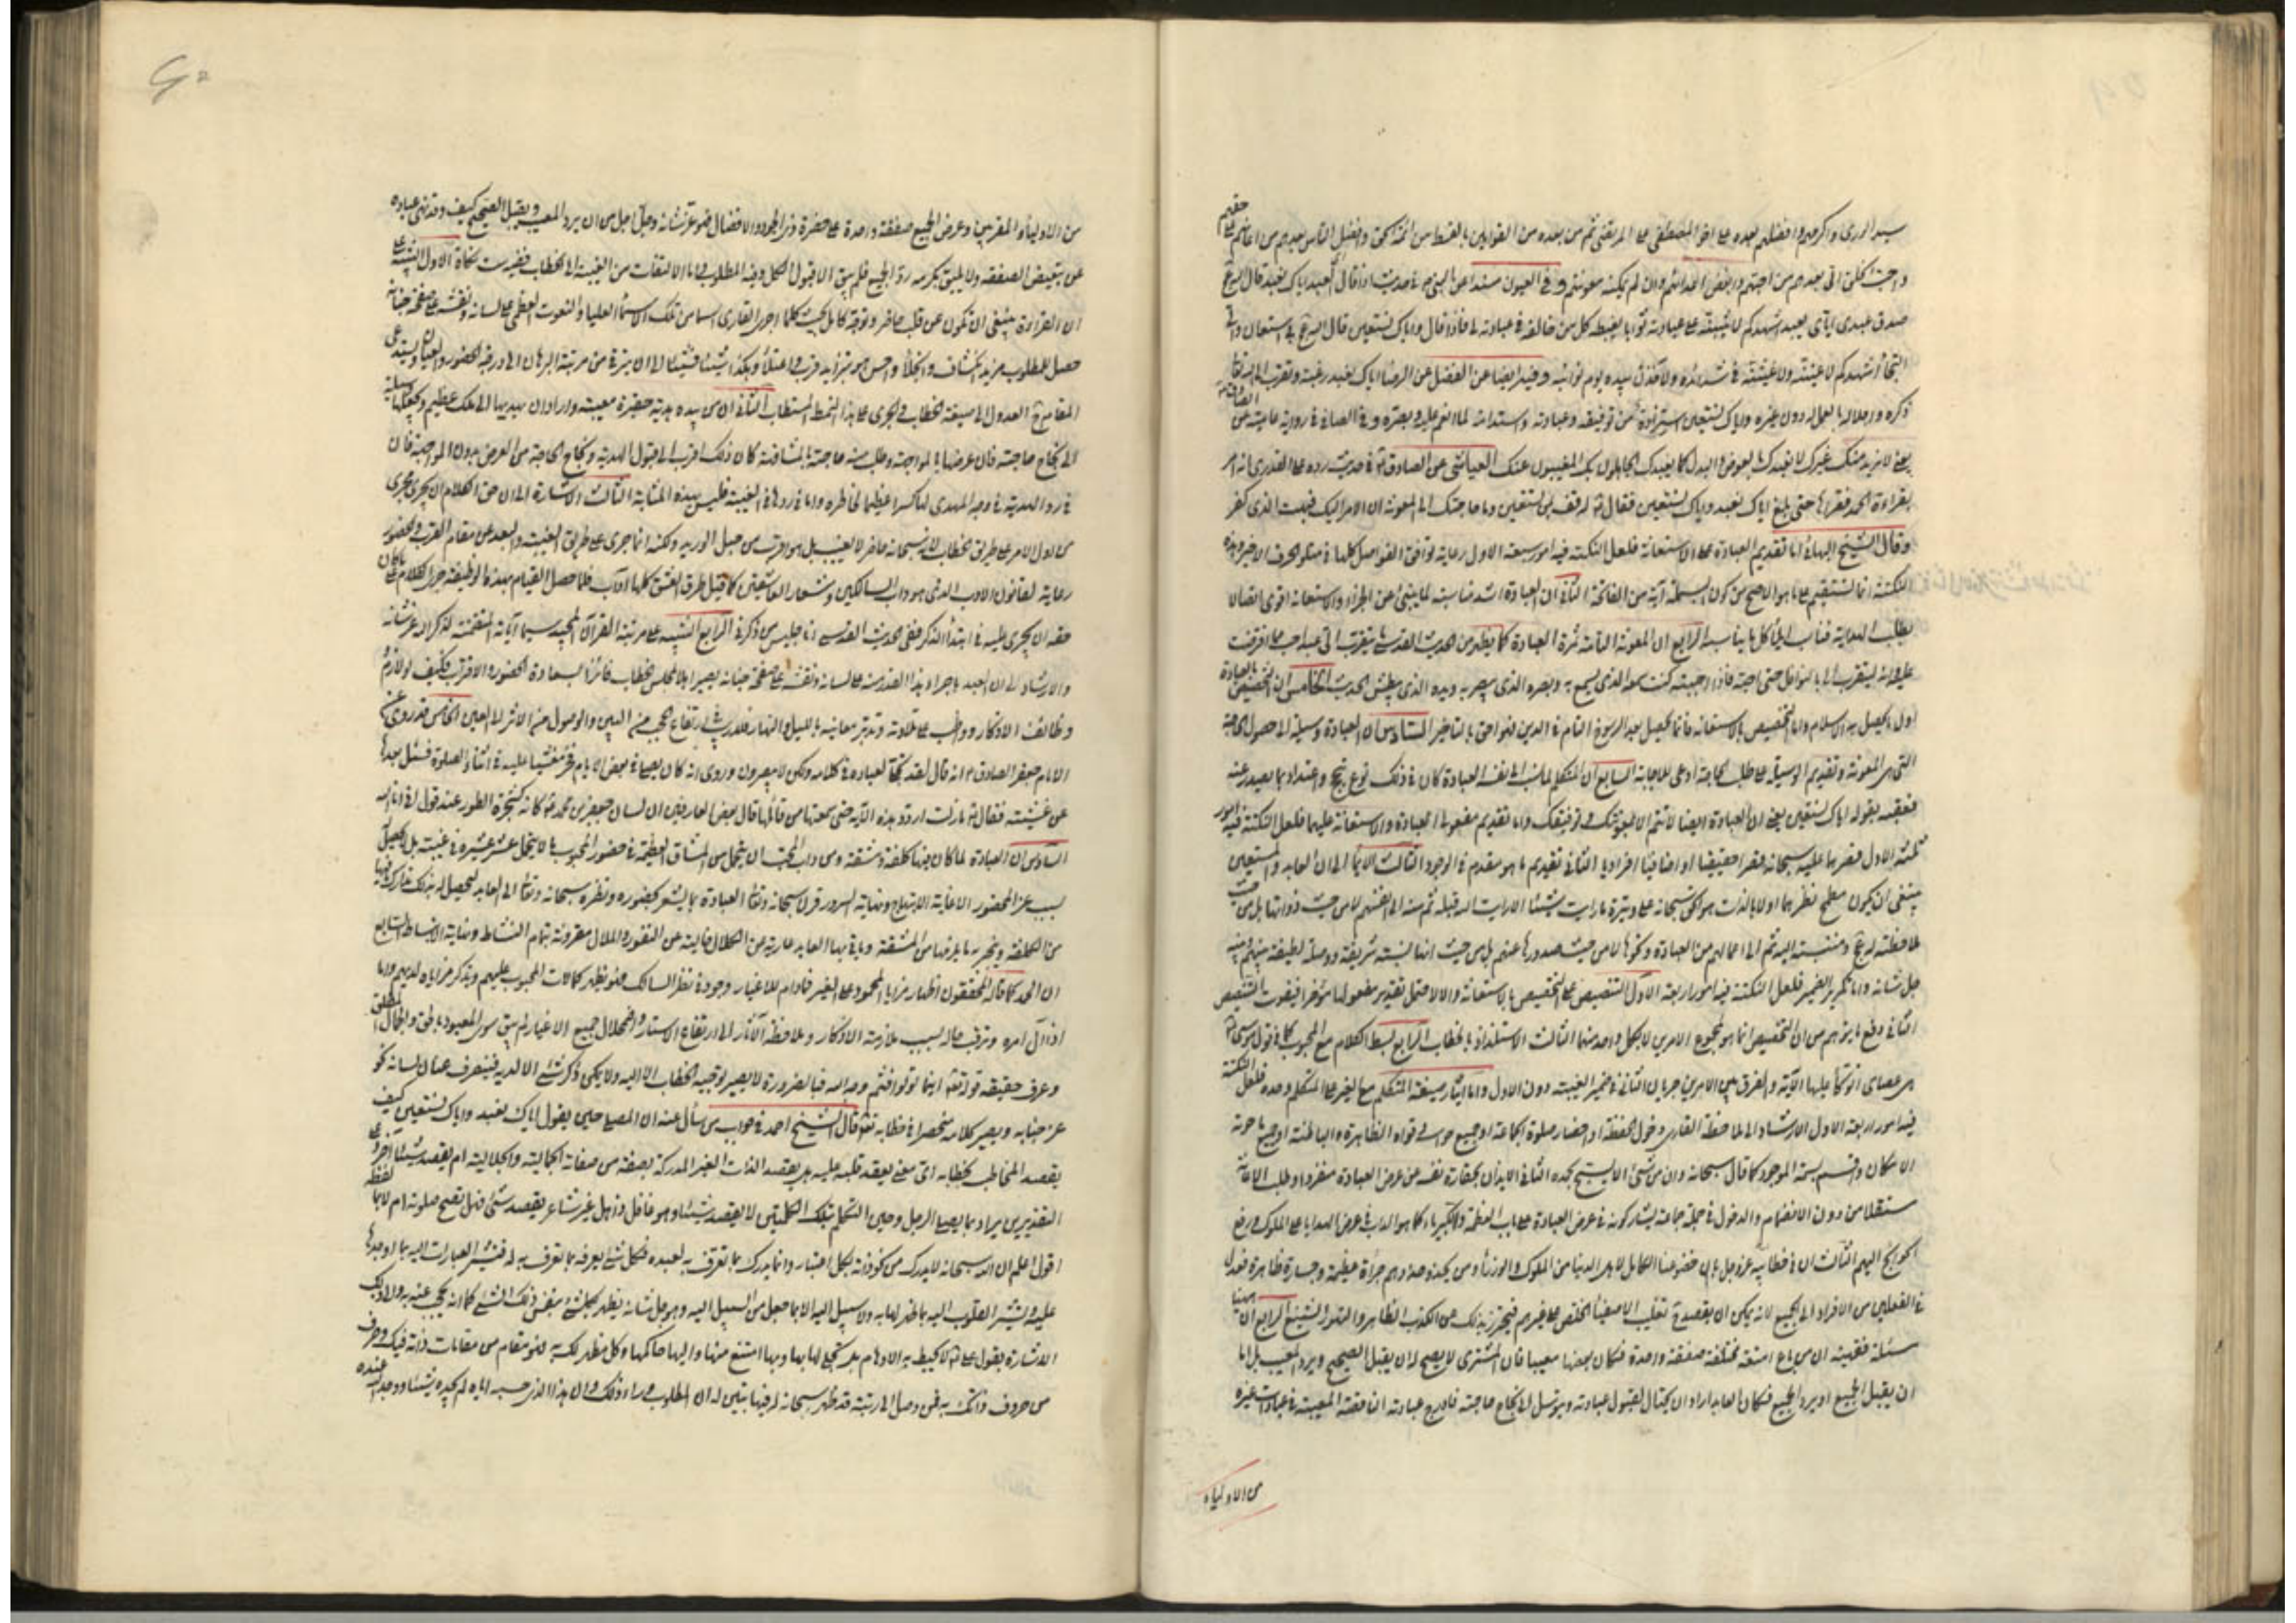 سيد الورى واكرمهم وافضلهم بعده على اخو المصطفى على المرتضى ثم من بعده من القوامين بالقسط من ائمة الحق وافضل الناس بعدهم من اعانهم على حقهم
واحب الخلق الى بعدهم من احبهم وابغض اعدائهم وان لم يمكنه معونتهم وفي العيون مسندا عن النبي في حديث اذا قال العبد اياك نعبد قال الله تع
صدق عبدي اياي يعبد اشهدكم لاثيبنه على عبادته ثوابا يغبطه كل من خالفه في عبادته لي فاذا قال واياك نستعين قال الله تع بي استعان والي
التجأ اشهدكم لاعيننه ولاغيثنه في شدائده ولآخذن بيده يوم نوائبه وفيه ايضا عن الفضل عن الرضا اياك نعبد رغبة وتقرب الى الله تعالى
ذكره واخلاص بالعمل له دون غيره واياك نستعين استزادة من توفيقه وعبادته واستدامة لما انعم عليه وبصره وفي الصافي في رواية عامية عن الصادق
يعني لا نريد منك غيرك لا نعبدك بالعوض والبدل كما يعبدك الجاهلون بك المغيبون عنك العياشي عن الصادق في حديث رده على القدري انه امر
بقراءة الحمد فقرأها حتى بلغ اياك نعبد واياك نستعين فقال له قف بمن تستعين وما حاجتك الى المعونة ان الامر اليك فبهت الذي كفر
وقال الشيخ البهائي اما تقديم العبادة على الاستعانة فلعل النكتة فيه امور سبعة الاول رعاية توافق الفواصل كلها في متلو الحرف الاخير وهذه
النكتة انما تستقيم على ما هو الاصح من كون البسملة آية من الفاتحة الثاني ان العبادة اشد مناسبة لما ينبئ عن الجزاء والاستعانة اقوى اتصالا
بطلب الهداية فناسب ايلاء كل ما يناسبه الرابع ان المعونة التامة ثمرة العبادة كما يظهر من الحديث القدسي ما يتقرب الي عبد احب مما افترضت
عليه وانه ليتقرب الي بالنوافل حتى احبه فاذا احببته كنت سمعه الذي يسمع به وبصره الذي يبصر به ويده الذي يبطش الحديث الخامس ان التخصيص بالعبادة
اول ما يحصل به الاسلام واما التخصيص بالاستعانة فانما يحصل بعد الرسوخ التام في الدين فهو احق بالتاخير السادس ان العبادة وسيلة الى حصول الحاجة
التي هي المعونة وتقديم الوسيلة على طلب الحاجة ادعى للاجابة السابع ان المتكلم لما نسب الى نفسه العبادة كان في ذلك نوع تبجح واعتداد بما يصدر عنه
فعقبه بقوله اياك نستعين يعني ان العبادة ايضا لا تتم الا بمعونتك وتوفيقك واما تقديم مفعولي العبادة والاستعانة عليهما فلعل النكتة فيه امور
ثلثة الاول قصرهما عليه سبحانه قصرا حقيقيا او اضافيا افراديا الثاني تقديم ما هو مقدم في الوجود الثالث الايماء الى ان العابد والمستعين
ينبغي ان يكون مطمح نظرهما اولا بالذات هو الحق سبحانه على وتيرة ما رايت شيئا الا رايت الله قبله ثم منه الى انفسهم لا من حيث ذواتها بل من حيث
ملاحظة له تع ومنتسبة اليه ثم الى اعمالهم من العبادة ونحوها لا من حيث صدورها عنهم بل من حيث انها نسبة شريفة ووصلة لطيفة بينهم وبينه
جل شانه واما تكرير الضمير فلعل النكتة فيه امور اربعة الاول التنصيص على التخصيص بالاستعانة والا لاحتمل تقدير مفعولها مؤخرا فيفوت التنصيص
الثاني دفع ما يتوهم من ان التخصيص انما هو لمجموع الامرين لا بكل واحد منهما الثالث الاستلذاذ بالخطاب الرابع لبسط الكلام مع المحبوب كما في قول موسى
هي عصاي اتوكأ عليها الآية والفرق بين الامرين جريان الثاني في ضمير الغيبة دون الاول واما ايثار صيغة المتكلم مع الغير على المتكلم وحده فلعل النكتة
فيه امور اربعة الاول الارشاد الى ملاحظة القاري دخول الحفظة او حضار صلوة الجماعة او جميع حواسه وقواه الظاهرة والباطنة او جميع ما حوته
الامكان واتسم بسمة الوجود كما قال سبحانه وان من شئ الا يسبح بحمده الثاني الايذان بحقارة نفسه عن عرض العبادة منفردا وطلب الاعانة
مستقلا من دون الانضمام والدخول في جملة جماعة يشاركونه في عرض العبادة على باب العظمة والكبرياء كما هو الداب في عرض الهدايا على الملوك ورفع
الحوائج اليهم الثالث ان في خطابه عز وجل بان خضوعنا الكامل لاهل الدنيا من الملوك والوزراء ومن يحذو حذوهم جراة عظيمة وجسارة ظاهرة فعدل
في الفعلين من الافراد الى الجمع لانه يمكن ان يقصد ح تغليب الاصفياء الخلص على غيرهم فيتحرز بذلك عن الكذب الظاهر والتهور الشنيع الرابع ان هيهنا
مسئلة فقهية ان من باع امتعة مختلفة صفقة واحدة فكان بعضها معيبا فان المشتري لا يصح له ان يقبل الصحيح ويرد المعيب بل اما
ان يقبل الجميع او يرد الجميع فكان العابد اراد ان يحتال لقبول عبادته ويتوسل الى انجاح حاجته فادرج عبادته الناقصة المعيبة في عبادات غيره
من الاولياء
من الاولياء والمقربين وعرض الجميع صفقة واحدة على حضرة ذي الجود والافضال فهو عز شانه وجل اجل من ان يرد المعيب ويقبل الصحيح كيف وقد نهى عباده
عن تبعيض الصفقة ولا يليق بكرمه رد الجميع فلم يبق الا قبول الكل وفيه المطلوب واما الالتفات من الغيبة الى الخطاب ففيه ست نكات الاول التنبيه على
ان القراءة ينبغي ان تكون عن قلب حاضر وتوجه كامل بحيث كلما اجرى القاري اسما من تلك الاسماء العليا والنعوت العظمى على لسانه ونقشه على صفحة جنانه
حصل للمطلوب مزيد انكشاف وانجلاء واحس هو بتزايد قرب واعتلاء وهكذا شيئا فشيئا الى ان يترقى من مرتبة البرهان الى درجة الحضور والعيان ويستدعي
المقام ح العدول الى صيغة الخطاب والجري على هذا النمط المستطاب الثاني ان من بيده هدية حقيرة معيبة واراد ان يهديها الى ملك عظيم ويجعلها وسيلة
الى نجاح حاجته فان عرضها بالمواجهة وطلب منه حاجته بالمشافهة كان ذلك اقرب الى قبول الهدية ونجاح الحاجة من العرض بدون المواجهة فان
في رد الهدية في وجه المهدي لها كسرا عظيما لخاطره واما في ردها في الغيبة فليس بهذه المثابة الثالث الاشارة الى ان حق الكلام ان يجري مجرى
من اول الامر على طريق الخطاب لانه سبحانه حاضر لا يغيب بل هو اقرب من حبل الوريد ولكنه انما جرى على طريق الغيبة والبعد عن مقام القرب والحضور
رعاية لقانون الادب الذي هو داب السالكين وشعار العاشقين كما قيل طرق العشق كلها آداب فلما حصل القيام بهذه الوظيفة جرى الكلام على ما كان
حقه ان يجري عليه في ابتداء الذكر ففي الحديث القدسي انا جليس من ذكرني الرابع التنبيه على مرتبة القرآن المجيد سيما آياته المتضمنة لذكر الله عز شانه
والارشاد الى ان العبد باجراء هذا القدر منه على لسانه ونقشه على صفحة جنانه يصير اهلا لمجلس الخطاب فائزا بسعادة الحضور والاقتراب فكيف لو لازم
وظائف الاذكار وواظب على تلاوته وتدبر معانيه بالليل والنهار فلا ريب في ارتفاع الحجب من البين والوصول من الاثر الى العين الخامس قد روي عن
الامام جعفر الصادق انه قال لقد تجلى لعباده في كلامه ولكن لا يبصرون وروي انه كان يصلي في بعض الايام فخر مغشيا عليه في اثناء الصلوة فسئل بعدها
عن غشيته فقال ما زلت اردد هذه الآية حتى سمعتها من قائلها قال بعض العارفين ان لسان جعفر بن محمد كانه كشجرة الطور عند قول اني انا الله
السادس ان العبادة لما كان فيها كلفة ومشقة ومن داب المحب ان يتحمل من المشاق العظيمة في حضور المحبوب ما لا يتحمل عشر عشيره في غيبته بل يحصل
بسبب عز الحضور الا غاية الابتهاج ونهاية السرور قرن سبحانه وتعالى العبادة بما يشعر بحضوره ونظره سبحانه وتعالى الى العابد ليحصل له بذلك تدارك ما فيها
من الكلفة وينجبر به ما يلزمها من المشقة وياتي بها العابد عارية من الكلال خالية عن الفتور والملال مقرونة بتمام النشاط ونهاية الانبساط السابع
ان الحمد كما قاله المحققون اظهار مزايا المحمود على الغير فمادام للاغيار وجود في نظر السالك فهو يظهر كمالات المحبوب عليهم ويذكر مزاياه لديهم واما
اذا آل امره وترقى حاله بسبب ملازمة الاذكار وملاحظة الآثار الى ارتفاع الاستار واضمحلال جميع الاغيار لم يبق سوى المعبود بالحق والجمال المطلق
وعرف حقيقة قوله تعالى اينما تولوا فثم وجه الله فبالضرورة لا يصير توجيه الخطاب الا اليه ولا يمكن ذكر شئ الا لديه فينصرف عنان لسانه نحو
عز جنابه ويصير كلامه منحصرا في خطابه قال الشيخ احمد في جواب من سأل عنه ان المصلي حين يقول اياك نعبد واياك نستعين كيف
يقصد المخاطب بخطابه اي معنى يعقد قلبه عليه هل يقصد الذات الغير المدركة بصفة من صفاته الجمالية والجلالية ام يقصد شيئا آخر وعلى
التقديرين يراد بما يصلي الرجل وحين التكلم بتلك الكلمتين لا يقصد شيئا وهو غافل وذاهل غير شاعر بقصد شئ فهل تصح صلوته ام لا
اقول اعلم ان الله سبحانه لا يدرك من نحو ذاته بكل اعتبار وانما يدرك بما تعرف به لعبده فكل شئ يعرفه بما تعرف به له فتشير العبارات اليه بما اوجدها
عليه وتشير القلوب اليه بما ظهر لها به ولا سبيل اليه الا بما جعل من السبيل اليه وهو جل شانه يظهر لكل شئ بنفس ذلك الشئ كما انه يحتجب عنه به والى ذلك
الاشارة بقول علي لا تحيط به الاوهام بل تجلى لها بها وبها امتنع منها واليها حاكمها وكل مظهر لك به فهو مقام من مقامات ذاته فيك وحرف
من حروف ذاتك به فمن وصل الى رتبة قد ظهر سبحانه له فيها تبين له ان المطلوب وراء ذلك وان هذا الذي حسبه اياه لم يجده شيئا ووجد الله عنده